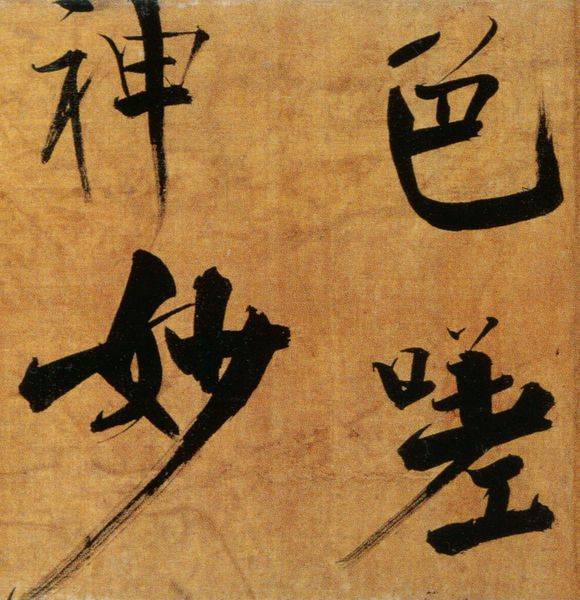 色嗟
神妙